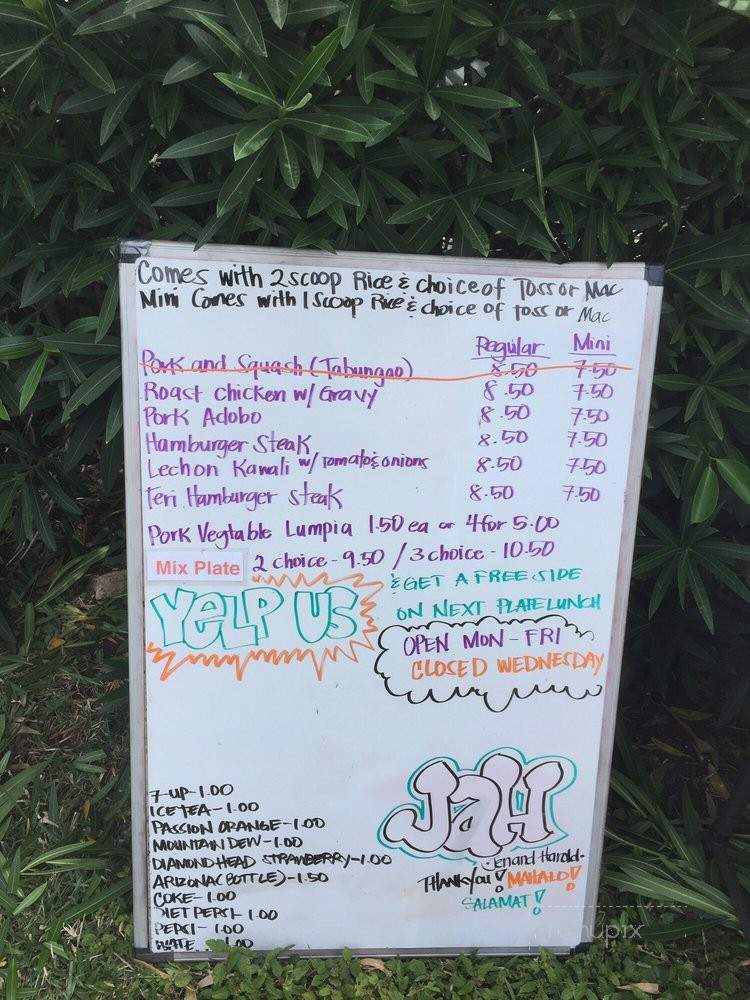 Comes with 2 scoop Rice & choice of Toss or Mac
Mini Comes with 1 scoop Rice & choice of toss or Mac
Regular Mini
Pork and Squash (Tabungao) 8.50 7.50
Roast chicken w/ Gravy 8.50 7.50
Pork Adobo 8.50 7.50
Hamburger Steak 8.50 7.50
Lechon Kawali w/ Tomato & onions 8.50 7.50
Teri Hamburger Steak 8.50 7.50
Pork Vegtable Lumpia 1.50 ea or 4 for 5.00
Mix Plate 2 choice - 9.50 / 3 choice - 10.50
YELP US & GET A FREE SIDE
ON NEXT PLATE LUNCH
OPEN MON - FRI
CLOSED WEDNESDAY
7-UP-1.00
ICE TEA-1.00
PASSION ORANGE-1.00
MOUNTAIN DEW-1.00
DIAMOND HEAD STRAWBERRY-1.00
ARIZONA(BOTTLE)-1.50
COKE-1.00
DIET PEPSI-1.00
PEPSI-1.00
WATE 1.00
JaH
Jen and Harold
THANK YOU! MAHALO!
SALAMAT!
menupix